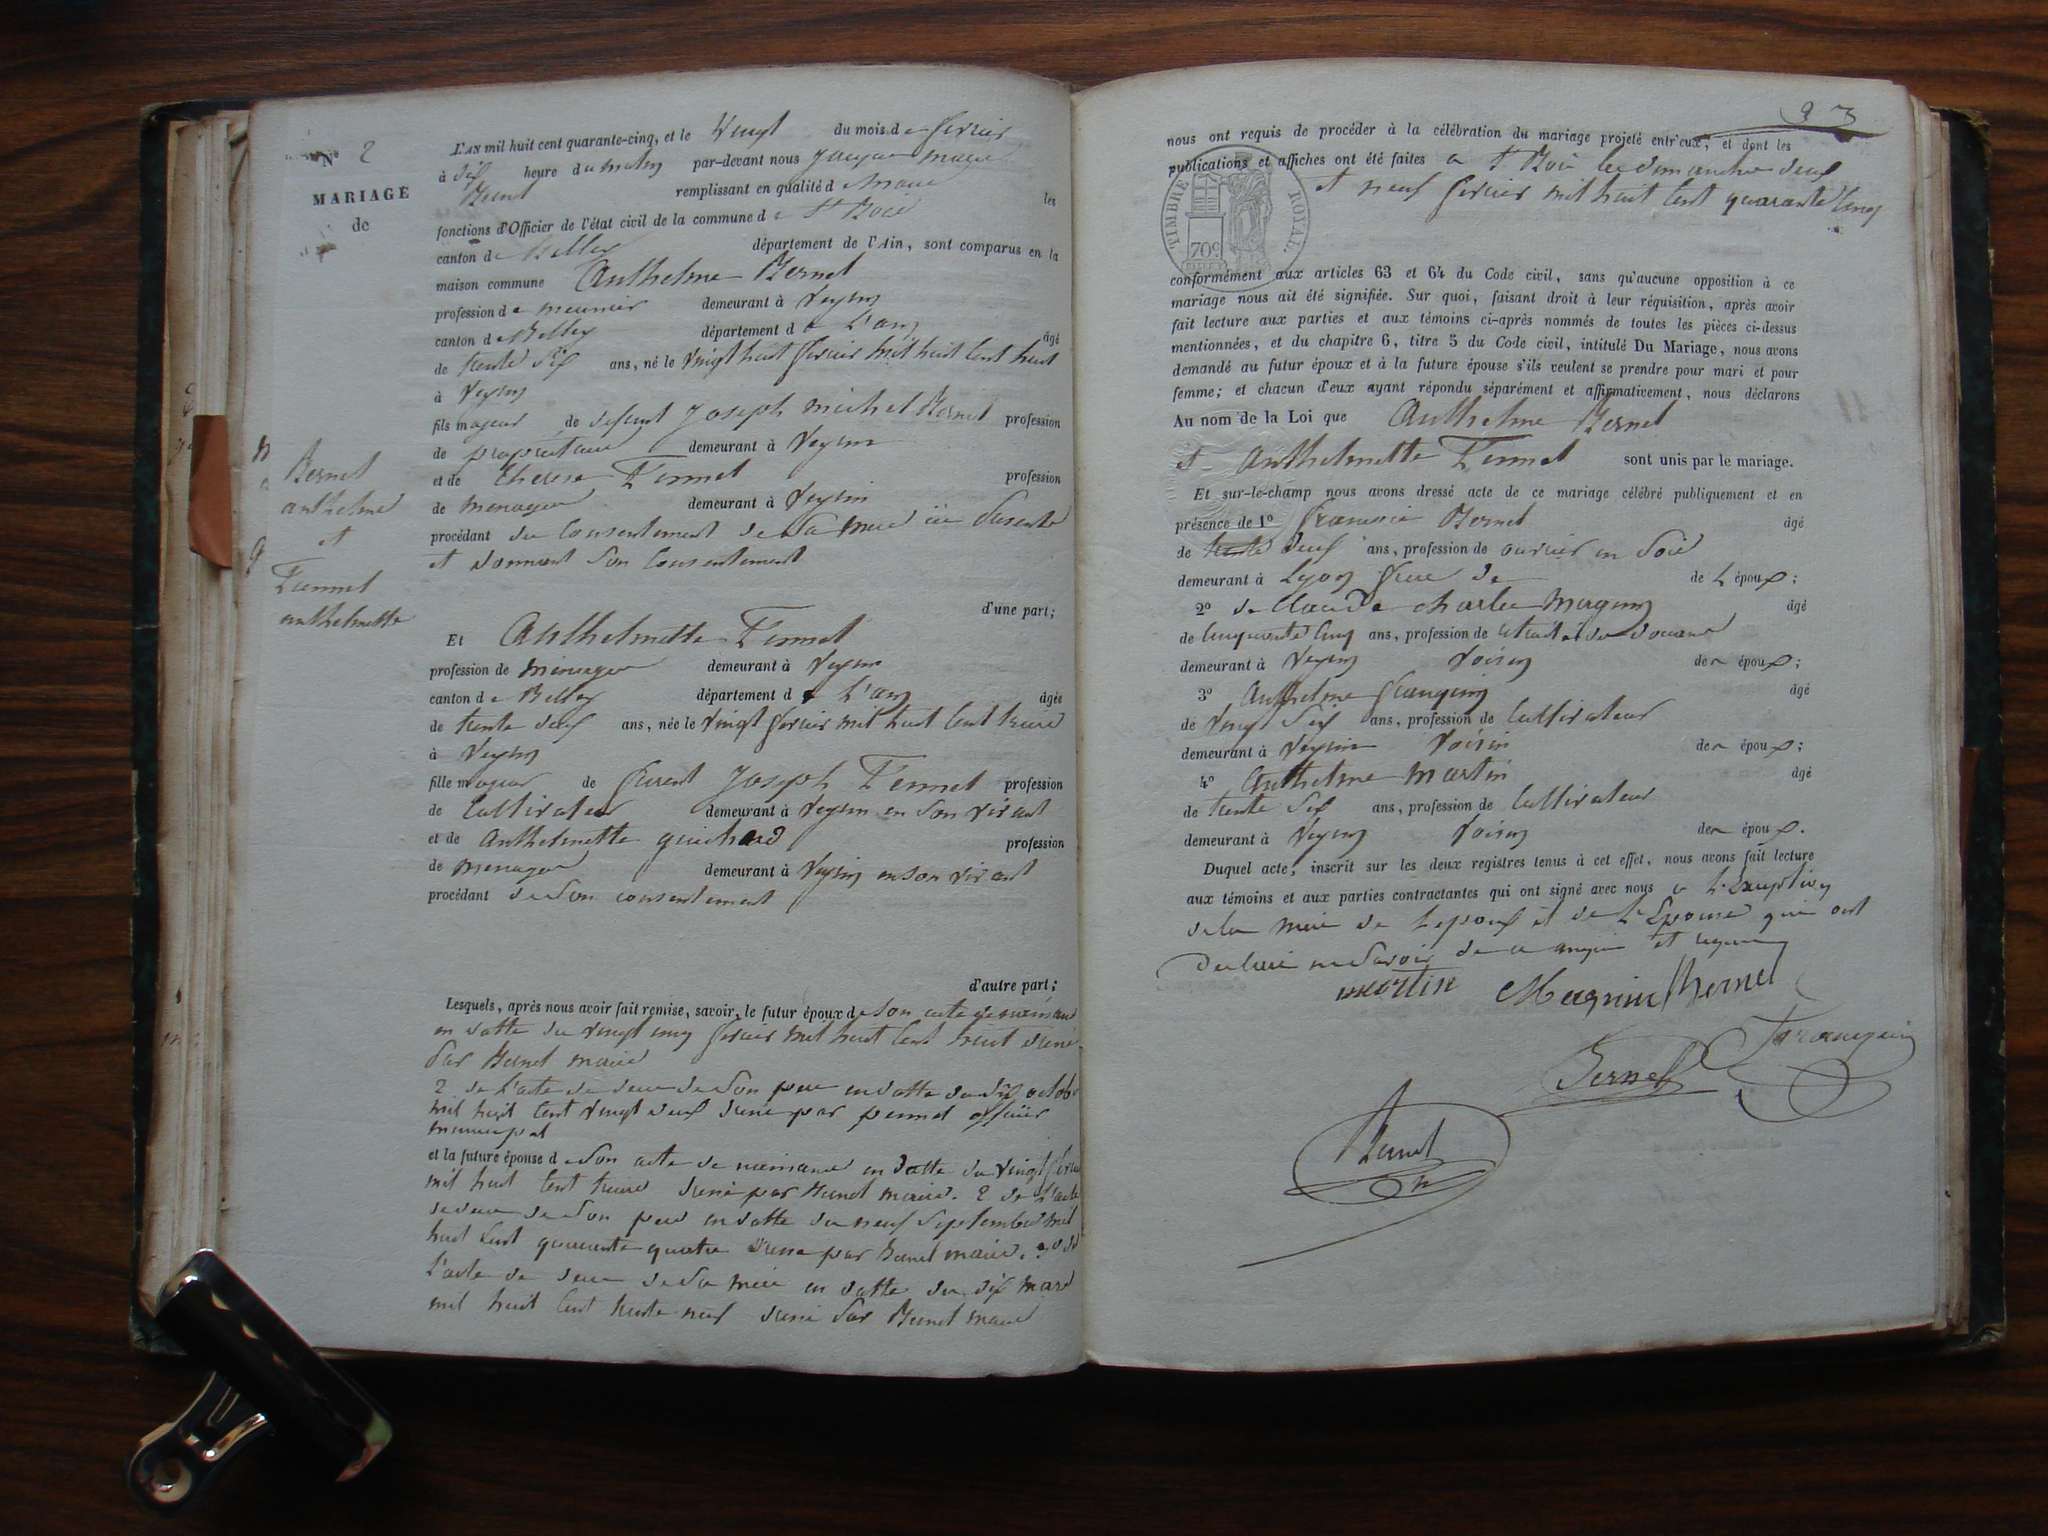 Nº 2
MARIAGE
de
Bernet
anthelme
et
anthelmette
L'AN mil huit cent quarante-cinq, et le Vingt du mois de fevrier
à dix heure du matin par-devant nous Jacque marie
remplissant en qualité de maire les
fonctions d'Officier de l'état civil de la commune de St Boie
canton de Belley département de l'Ain, sont comparus en la
maison commune Anthelme Bernet
profession de meunier demeurant à Veyrin
canton de Belley département de L'ain âgé
de trente six ans, né le vingt huit fevrier mil huit cent huit
à Veyrin
fils majeur de defunt Joseph michel Bernet profession
de propriétaire demeurant à Veyrin
et de therese profession
de menagere demeurant à Veyrin
procédant du consentement de sa mere ici presente
et donnant son consentement
d'une part;
Et Anthelmette
profession de menagere demeurant à Veyrin
canton de Belley département de L'ain âgée
de trente deux ans, née le vingt fevrier mil huit cent treize
à Veyrin
fille majeur de Joseph profession
de cultivateur demeurant à Veyrin en son vivant
et de Anthelmette guichard profession
de menagere demeurant à Veyrin en son vivant
procédant de son consentement
d'autre part;
Lesquels, après nous avoir fait remise, savoir, le futur époux de son acte de naissance
en datte du vingt fevrier mil huit cent huit
par maire
2 de L'acte de de son pere en datte du dix octobre
mil huit cent vingt deux par officier
municipal
et la future épouse de son acte de naissance en datte du vingt fevrier
mil huit cent treize par maire. 2 de L'acte
de son pere en datte du neuf septembre mil
huit cent quarante quatre par maire.
L'acte de de sa mere en datte du dix mars
mil huit cent trente neuf par maire
23
nous ont requis de procéder à la célébration du mariage projeté entr'eux, et dont les
publications et affiches ont été faites a St Boie les dimanche deux
et neuf fevrier mil huit cent quarante cinq
TIMBRE ROYAL.
70c
conformément aux articles 63 et 64 du Code civil, sans qu'aucune opposition à ce
mariage nous ait été signifiée. Sur quoi, faisant droit à leur réquisition, après avoir
fait lecture aux parties et aux témoins ci-après nommés de toutes les pièces ci-dessus
mentionnées, et du chapitre 6, titre 5 du Code civil, intitulé Du Mariage, nous avons
demandé au futur époux et à la future épouse s'ils veulent se prendre pour mari et pour
femme; et chacun d'eux ayant répondu séparément et affirmativement, nous déclarons
Au nom de la Loi que Anthelme Bernet
et Anthelmette sont unis par le mariage.
Et sur-le-champ nous avons dressé acte de ce mariage célébré publiquement et en
présence de 1º francois Bernet âgé
de trente deux ans, profession de ouvrier en soie
demeurant à Lyon frere de de L époux;
2º de Claude charle Magnin âgé
de cinquante cinq ans, profession de retraité des douane
demeurant à Veyrin voisin de époux;
3º Anthelme francquin âgé
de vingt six ans, profession de cultivateur
demeurant à Veyrin voisin de époux;
4º Anthelme martin âgé
de trente six ans, profession de cultivateur
demeurant à Veyrin voisin de époux.
Duquel acte, inscrit sur les deux registres tenus à cet effet, nous avons fait lecture
aux témoins et aux parties contractantes qui ont signé avec nous a L'exception
de la mere de L'epoux et de L'epouse qui ont
declaré ne savoir de ce enquis et requis
martin Magnin Bernet
Bernet francquin